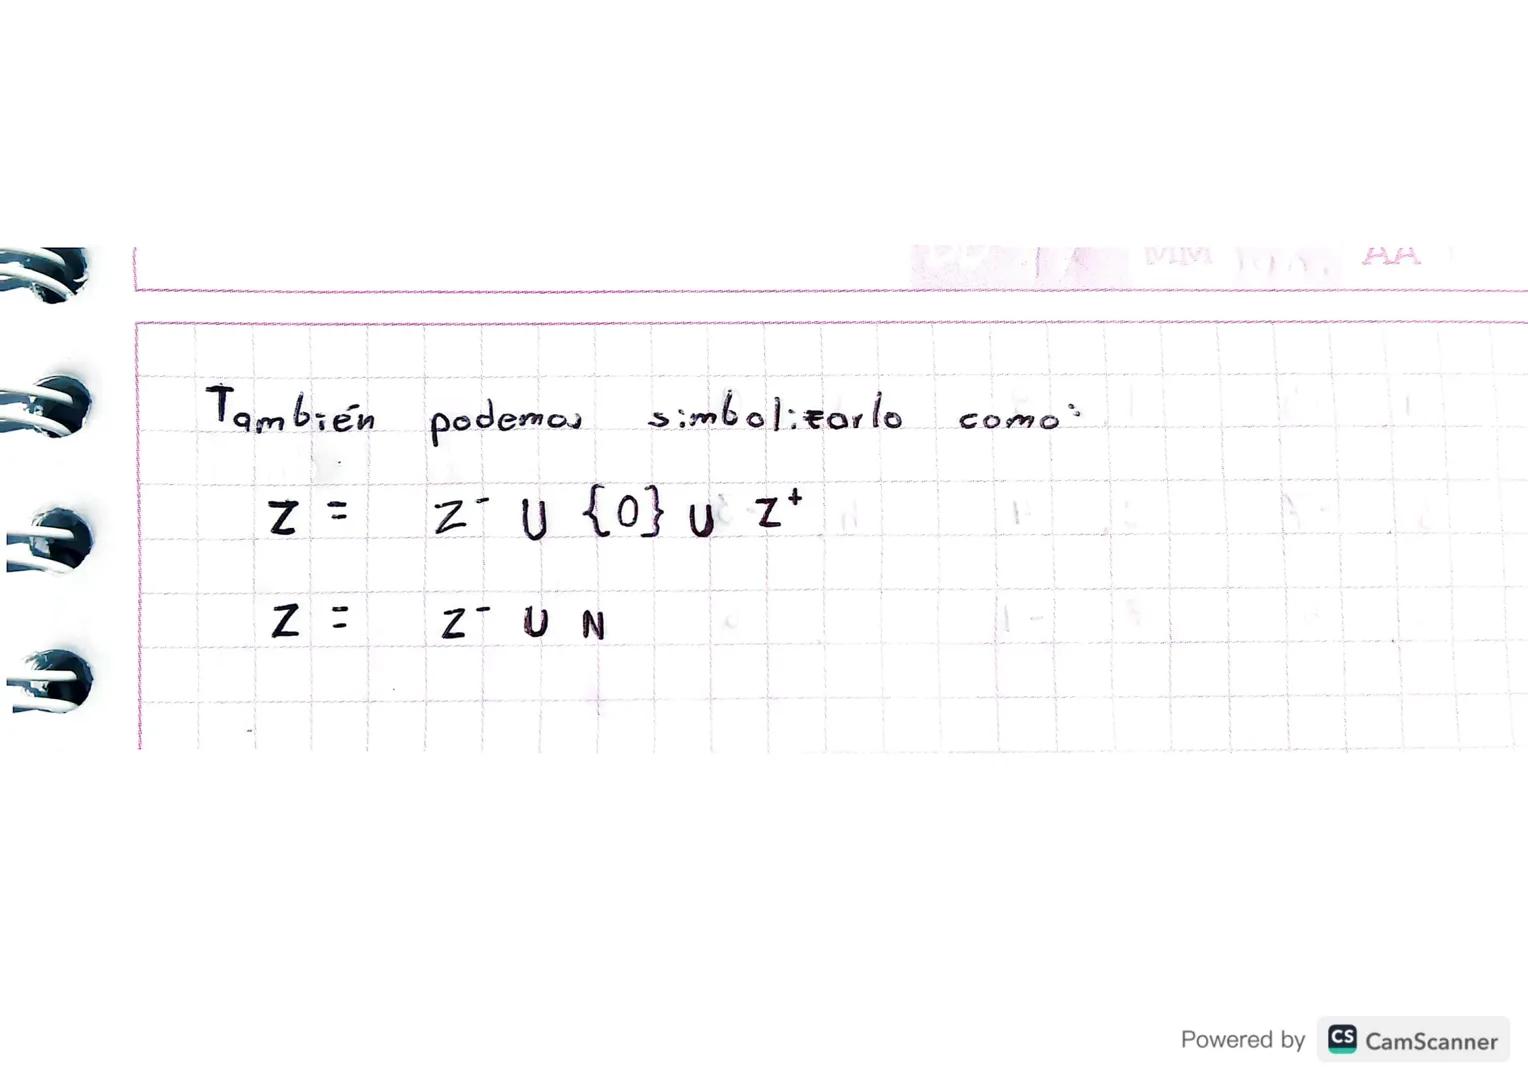 MM AA
También podemos simbolizarlo como:
Z = Z⁻ U {0} U Z⁺
Z = Z⁻ U N
Powered by CS CamScanner